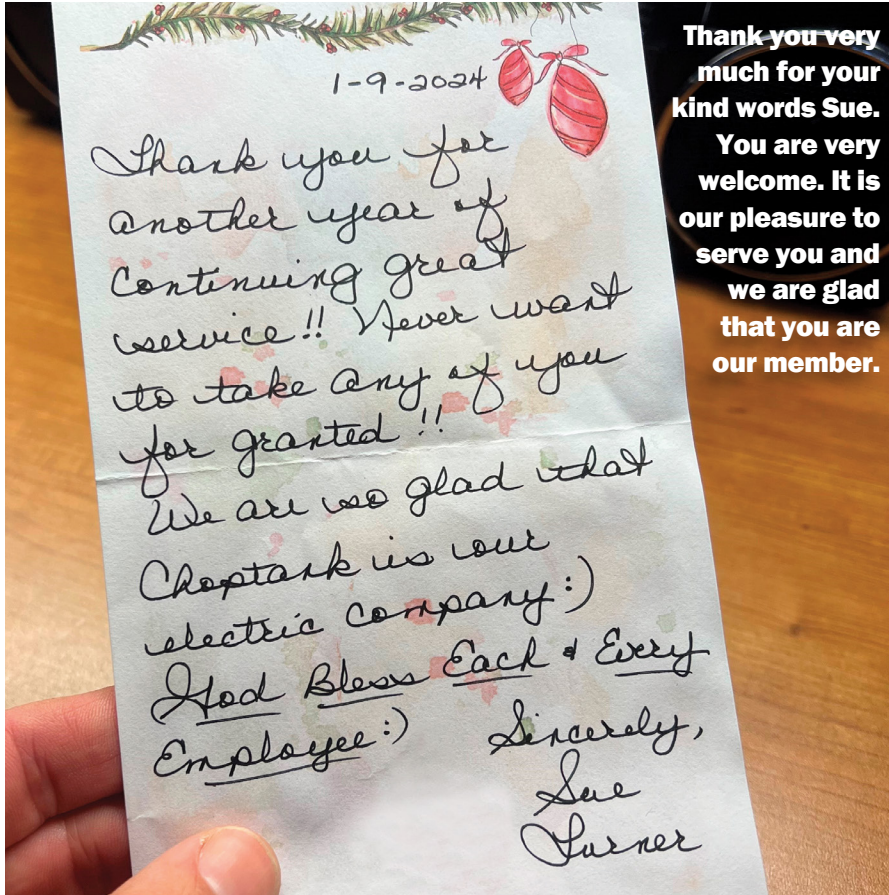 1-9-2024
Thank you for
another year of
continuing great
service!! Never want
to take any of you
for granted!!
We are so glad that
Choptank is our
electric company:)
God Bless Each & Every
Employee:)
Sincerely,
Sue
Turner
Thank you very
much for your
kind words Sue.
You are very
welcome. It is
our pleasure to
serve you and
we are glad
that you are
our member.